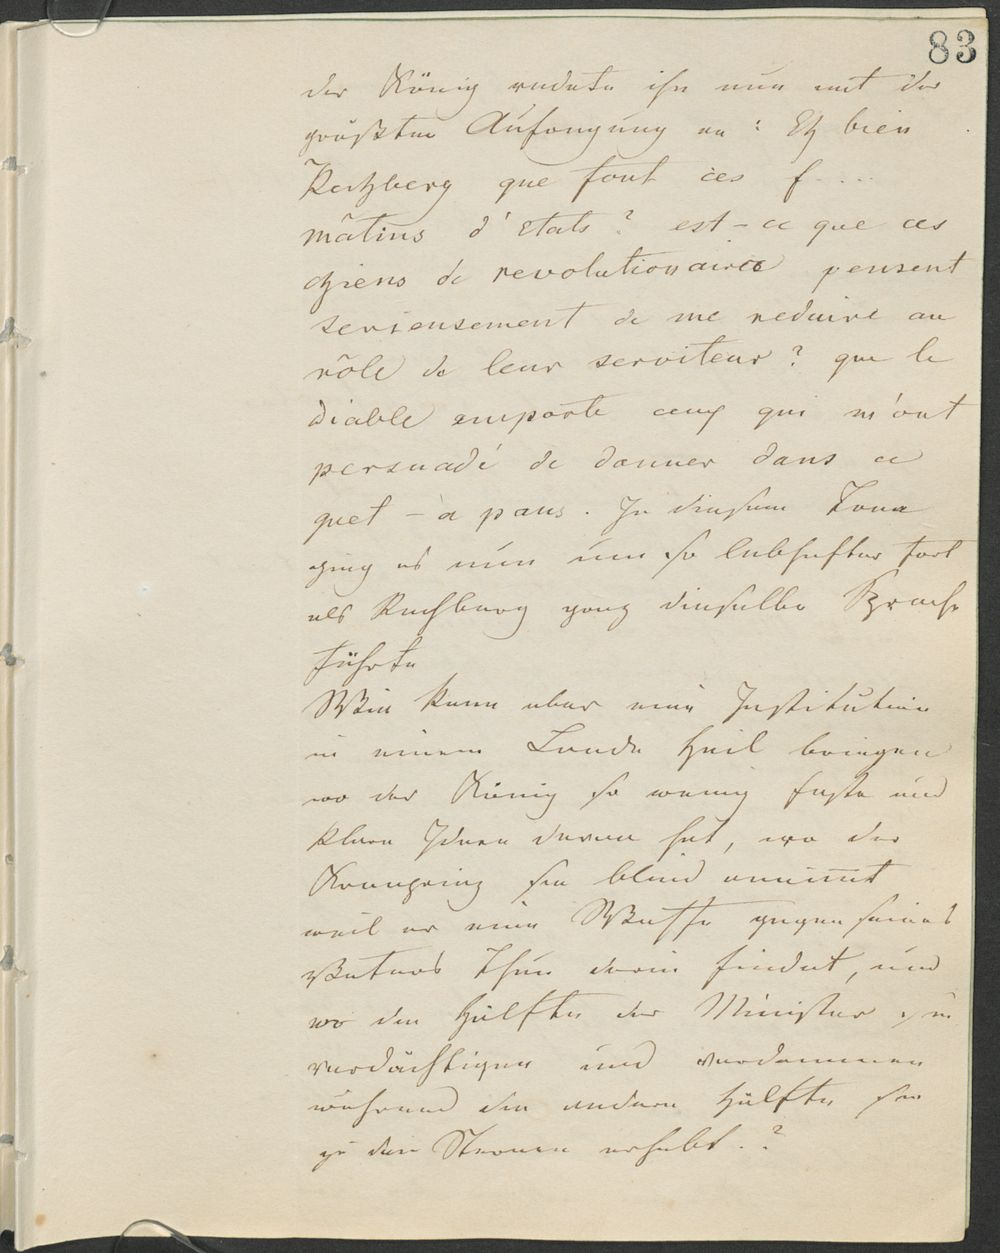 83
der König redete ihn nun mit der
größten Aufregung an: Eh bien
Rechberg que font ces f....
mâtins d'Etats? est-ce que ces
chiens de revolutionaires pensent
serieusement de me reduire au
rôle de leur serviteur? que le
diable emporte ceux qui m'ont
persuadé de donner dans ce
guet-à pans. In diesem Tone
ging es nun um so lebhafter fort
als Rechberg ganz dieselbe Sprache
führte
Wie kann aber eine Institution
in einem Lande Heil bringen
wo der König so wenig feste und
klare Ideen davon hat, wo der
Kronprinz sie blind annimmt
weil er eine Waffe gegen seines
Vaters Thun darin findet, und
wo die Hälfte der Minister sie
verdächtigen und verdammen
während die andere Hälfte sie
zu den Sternen erhebt.?